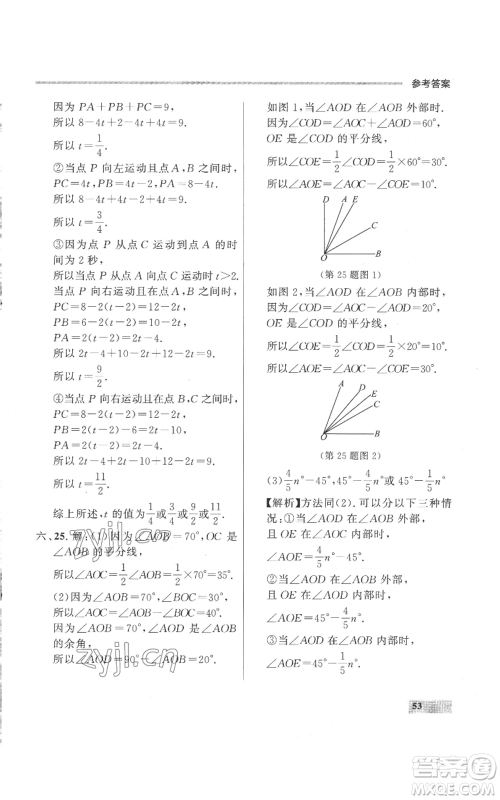 参考答案
因为 PA+PB+PC=9,
所以 8-4t+2-4t+4t=9.
所以 t=1/4.
②当点 P 向左运动且点 A,B 之间时,
PC=4t,PB=4t-2,PA=8-4t.
所以 8-4t+4t-2+4t=9.
所以 t=3/4.
③因为点 P 从点 C 运动到点 A 的时
间为 2 秒,
所以当点 P 从点 A 向点 C 运动时 t>2.
当点 P 向右运动且在点 A,B 之间时,
PC=8-2(t-2)=12-2t,
PB=6-2(t-2)=10-2t,
PA=2(t-2)=2t-4.
所以 2t-4+10-2t+12-2t=9.
所以 t=9/2.
④当点 P 向右运动且在点 B,C 之间时,
PC=8-2(t-2)=12-2t,
PB=2(t-2)-6=2t-10,
PA=2(t-2)=2t-4.
所以 2t-4+2t-10+12-2t=9.
所以 t=11/2.
综上所述,t 的值为 1/4 或 3/4 或 9/2 或 11/2.
六、25. 解:(1)因为∠AOB=70°,OC 是
∠AOB 的平分线,
所以∠AOC=1/2∠AOB=1/2×70°=35°.
(2)因为∠AOB=70°,∠BOC=30°,
所以∠AOC=40°.
因为∠AOB=70°,∠AOD 是∠AOB
的余角,
所以∠AOD=90°-∠AOB=20°.
如图 1,当∠AOD 在∠AOB 外部时.
因为∠COD=∠AOC+∠AOD=60°,
OE 是∠COD 的平分线,
所以∠COE=1/2∠COD=1/2×60°=30°.
所以∠AOE=∠AOC-∠COE=10°.
D A E
C
O B
(第 25 题图 1)
如图 2,当∠AOD 在∠AOB 内部时.
因为∠COD=∠AOC-∠AOD=20°,
OE 是∠COD 的平分线,
所以∠COE=1/2∠COD=1/2×20°=10°.
所以∠AOE=∠AOC-∠COE=30°.
A
D
E
C
O B
(第 25 题图 2)
(3)4/5n°-45°,45°-1/5n°或45°-4/5n°
【解析】方法同(2). 可以分以下三种情
况:①当∠AOD 在∠AOB 外部时,
∠AOE=4/5n°-45°.
②当∠AOD 在∠AOB 内部时,
∠AOE=45°-1/5n°
③当∠AOD 在∠AOB 内部时,
∠AOE=45°-4/5n°
53
zyjl.cn
zyjl.cn